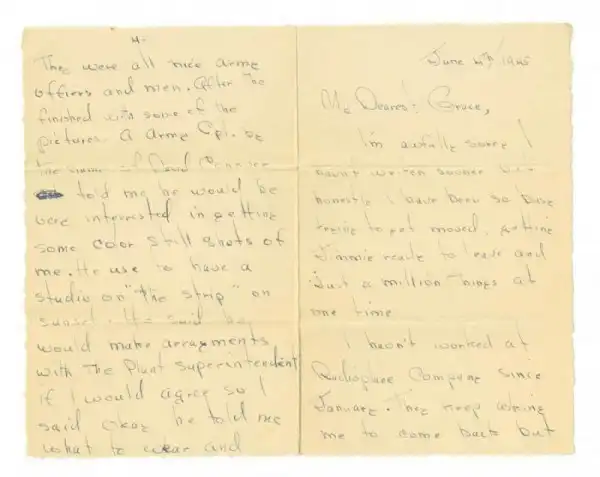 4-
They were all nice army
offiers and men. After the
finished with some of the
pictures. A army Cpl. by
the name of David
told me he would be
very interested in getting
some color still shots of
me. He use to have a
studio on "the strip" on
Sunset. He said he
would make arragments
with the Plant superintendent
if I would agree so I
said okay he told me
what to wear and
June 4th, 1945
My Dearest Grace,
I'm awfully sorry I
havn't written sooner but
honestly I have been so busy
trying to get moved, getting
Jimmie ready to leave and
just a million things at
one time
I havn't worked at
Radioplane Company since
January. They keep
me to come back but